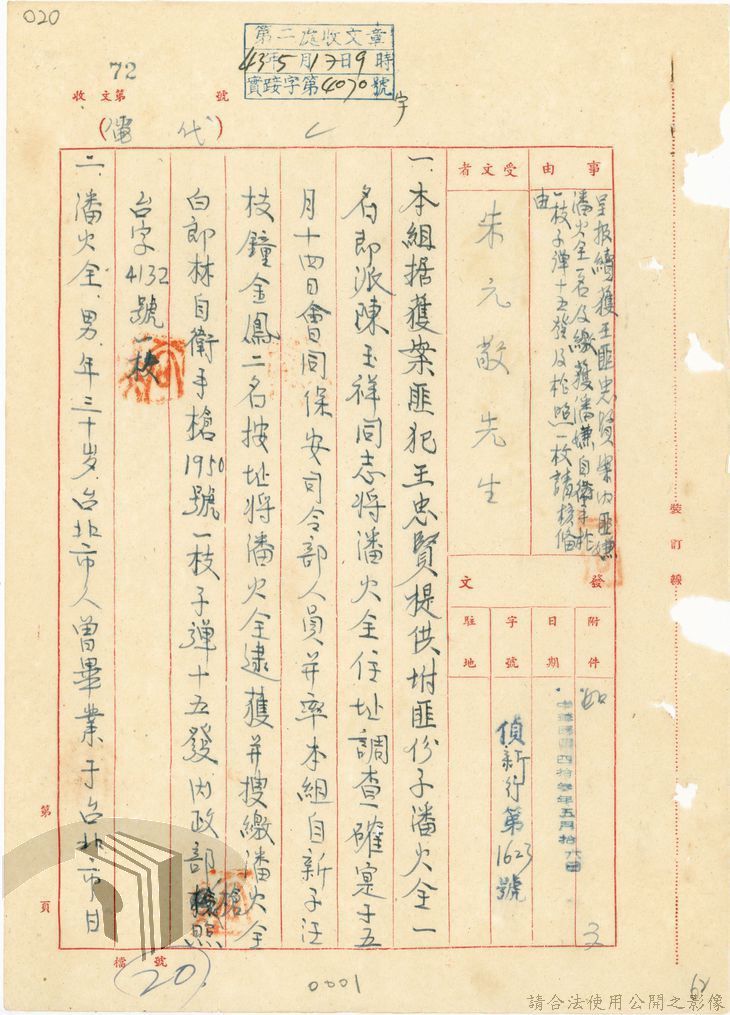 020
第二處收文章
43年5月17日9時
實踐字第4070號
字
72
收文第 號
(代電)
事由
呈报續獲王匪忠賢案內匪嫌
潘火全一名及繳獲潘嫌自衛手枪
一枝子彈十五發及枪照一枚請核備
由
受文者
朱元敬先生
發文
附件
如
日期
中華民國四拾參年五月拾六日
字號
偵新行第1623號
駐地
一、本組据獲案匪犯王忠賢提供坿匪份子潘火全一
名即派陳玉祥同志将潘火全住址調查確寔于五
月十四日會同保安司令部人員并率本組自新子汪
枝鐘金鳳二名按址将潘火全逮獲并搜繳潘火全
白郎林自衛手槍1950號一枝子彈十五發內政部槍照
台字4132號一枚
二、潘火全.男.年三十岁.台北市人曾畢業于台北市日
裝訂線
第 頁
檔號
20
0001
請合法使用公開之影像